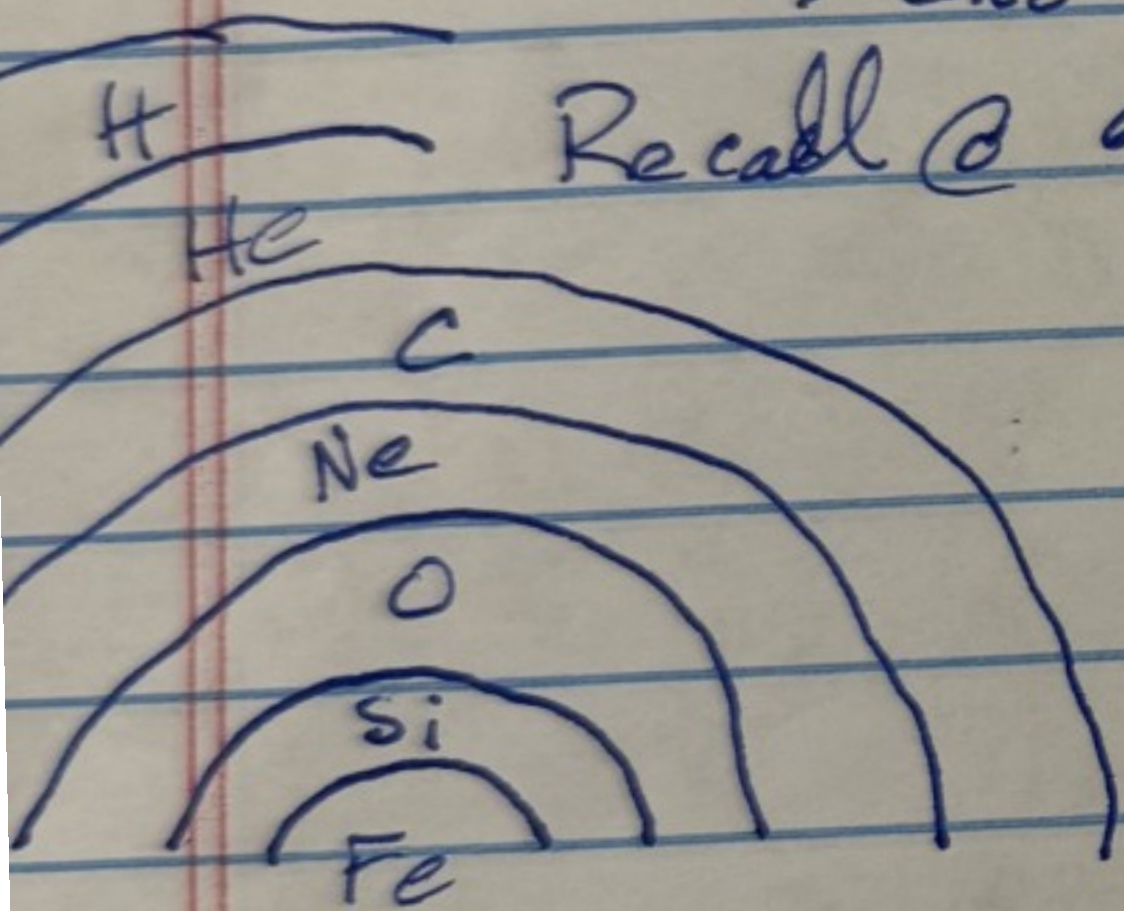 H
Recall @
He
C
Ne
O
Si
Fe